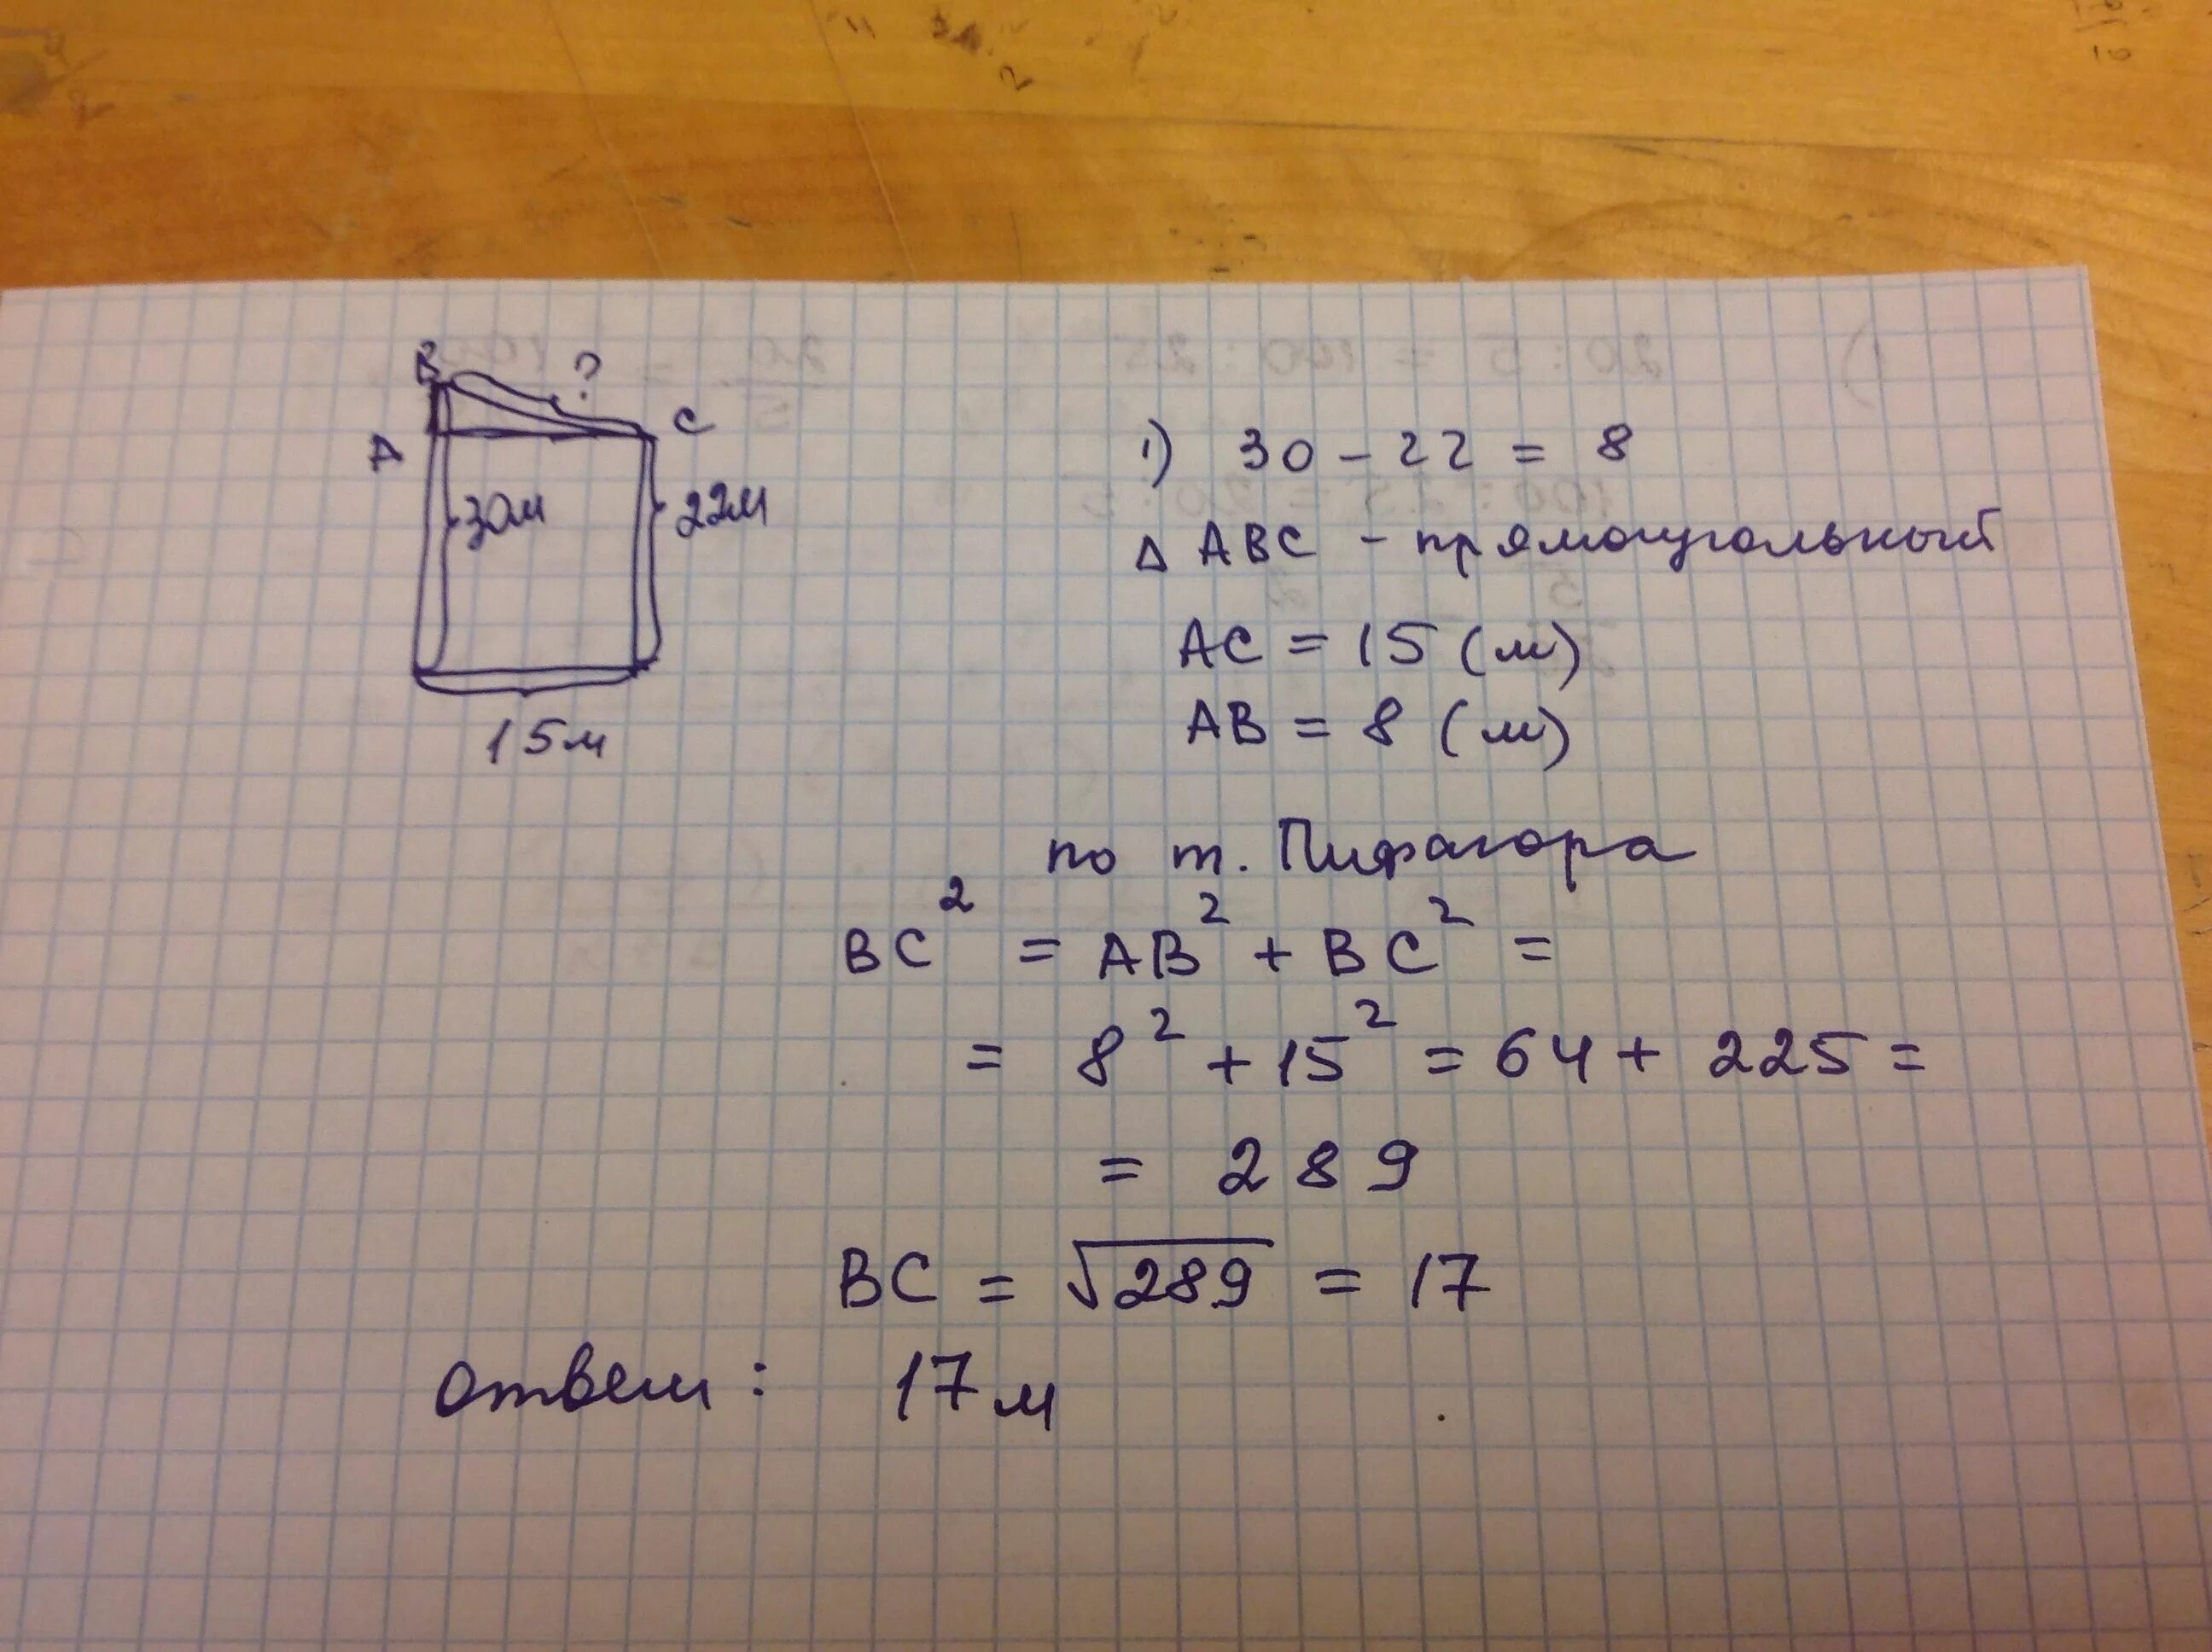 B ?
A C
30м 22м
15м
1) 30 - 22 = 8
Δ ABC - прямоугольный
AC = 15 (м)
AB = 8 (м)
по т. Пифагора
BC² = AB² + BC² =
= 8² + 15² = 64 + 225 =
= 289
BC = √289 = 17
ответ: 17 м